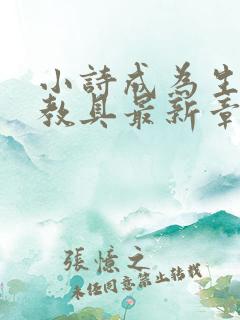 小詩成為生
教具最新章
張憶之
未经同意禁止转载